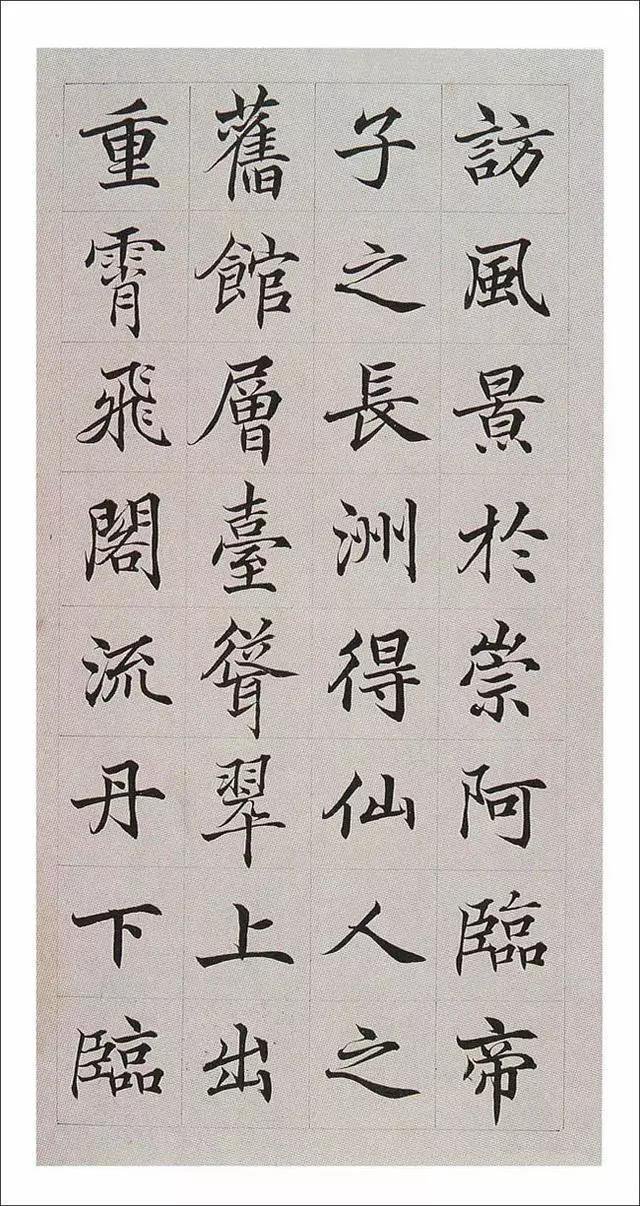 訪風景於崇阿臨帝
子之長洲得仙人之
舊館層臺聳翠上出
重霄飛閣流丹下臨